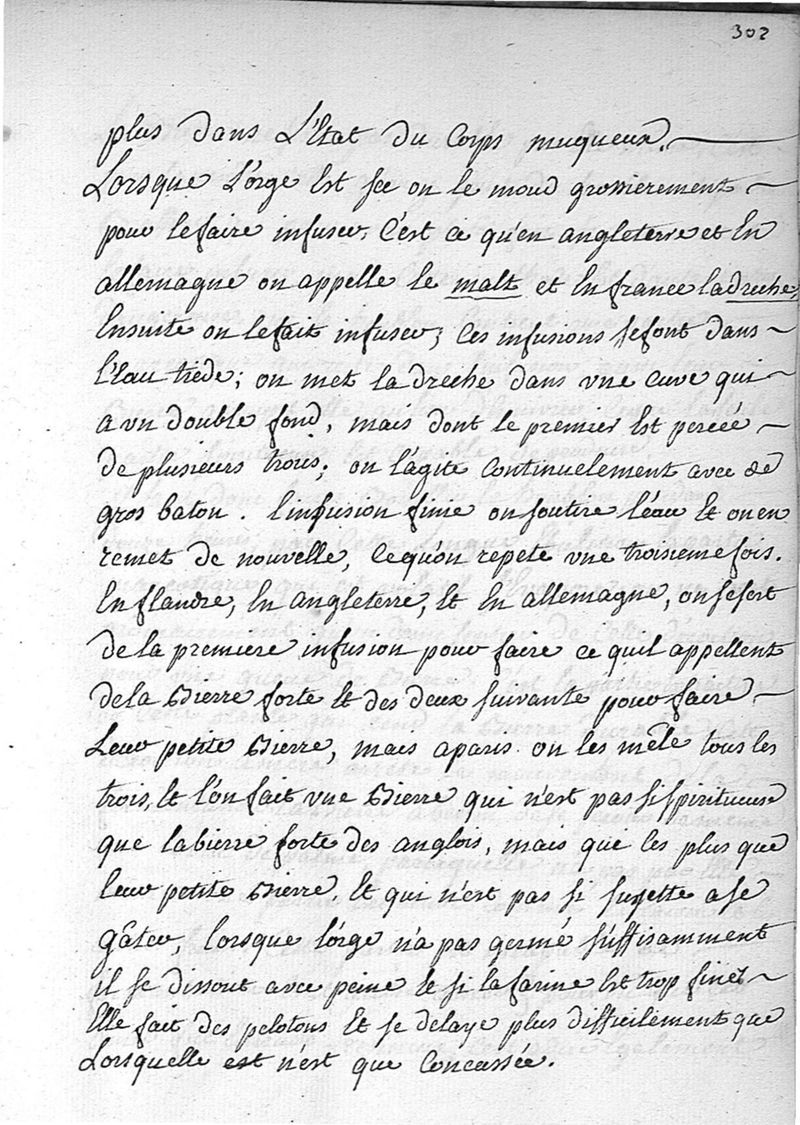 302
plus dans L'Etat du Corps muqueux.
Lorsque L'orge Est sec on le moud grossierement
pour le faire infuser, C'est ce qu'en angleterre et En
allemagne on appelle le malt et En france la dreche,
Ensuite on le fait infuser; Ces infusions se font dans
l'Eau tiede; on met la dreche dans une cuve qui
a un double fond, mais dont le premier Est perceé
de plusieurs trous; on l'agite Continuelement avec de
gros baton. l'infusion finie on soutire l'eau Et on en
remet de nouvelle, Ce qu'on repete une troisieme fois.
En flandre, En angleterre, Et En allemagne, on se sert
de la premiere infusion pour faire ce quil appellent
de la Bierre forte Et des deux suivante pour faire
Leur petite Bierre, mais a paris on les mêle tous les
trois, Et l'on fait une Bierre qui n'est pas si spiritueuse
que la bierre forte des anglois, mais qui les plus que
leur petite Bierre Et qui n'est pas si sujette a se
gâter, lorsque l'orge n'a pas germé suffisamment
il se dissout avec peine Et si la farine Est trop fine
Elle fait des pelotons Et se delaye plus difficilement que
Lorsquelle est n'est que Concassée.